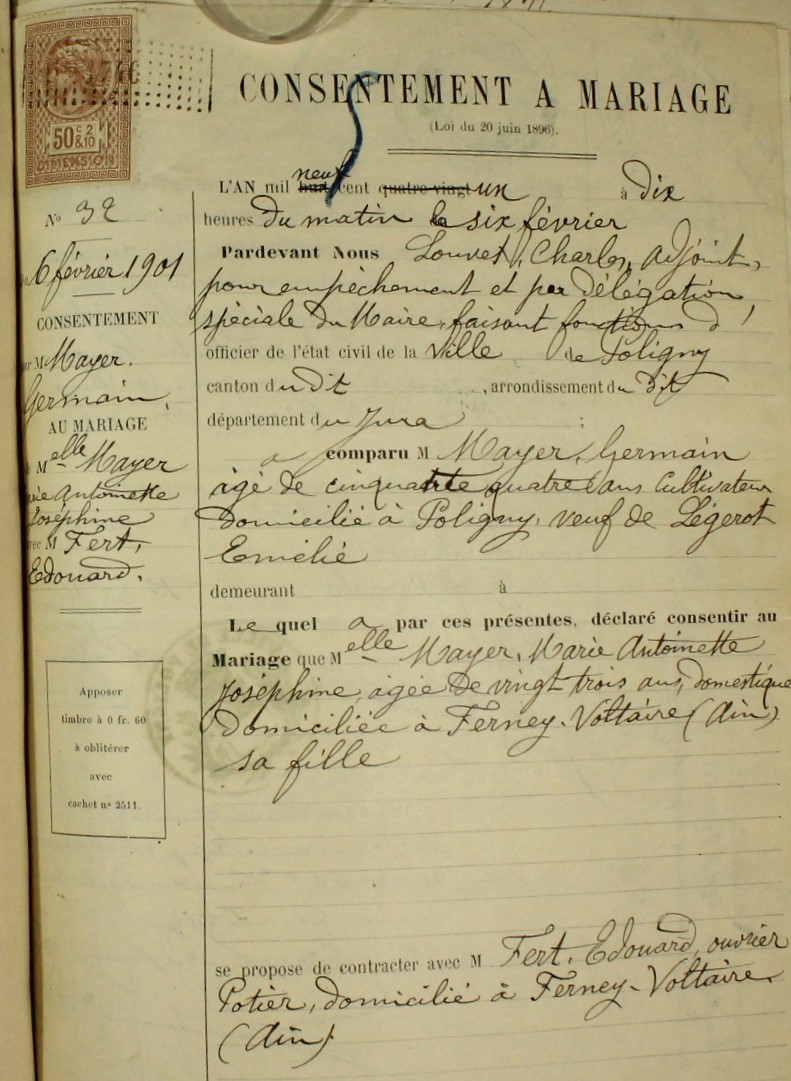 50 c 2
& 10
DIMENSION
CONSENTEMENT A MARIAGE
(Loi du 20 juin 1896).
5
Nº 32
6 février 1901
CONSENTEMENT
Mayer.
Germain,
AU MARIAGE
Melle Mayer
Antoinette
Joséphine
M Fert,
Edouard.
Apposer
timbre à 0 fr. 60
à oblitérer
avec
cachet nº 2511.
L'AN mil huit neuf cent quatre-vingt un à Dix
heures Du matin le six février
Pardevant Nous Louvet, Charles, Adjoint,
pour empêchement et par Délégation
spéciale Du Maire, faisant fonctions d'
officier de l'état civil de la Ville de Poligny
canton du Dit, arrondissement du Dit
département du Jura ;
a comparu M Mayer, Germain
âgé De cinquante quatre ans Cultivateur
Domicilié à Poligny, veuf de Légerot
Emélie
demeurant à
Le quel a par ces présentes, déclaré consentir au
Mariage que Melle Mayer, Marie Antoinette
Joséphine, âgée De vingt trois ans, Domestique
Domiciliée à Ferney-Voltaire (Ain)
sa fille
se propose de contracter avec M Fert, Edouard, ouvrier
Potier, Domicilié à Ferney-Voltaire
(Ain)